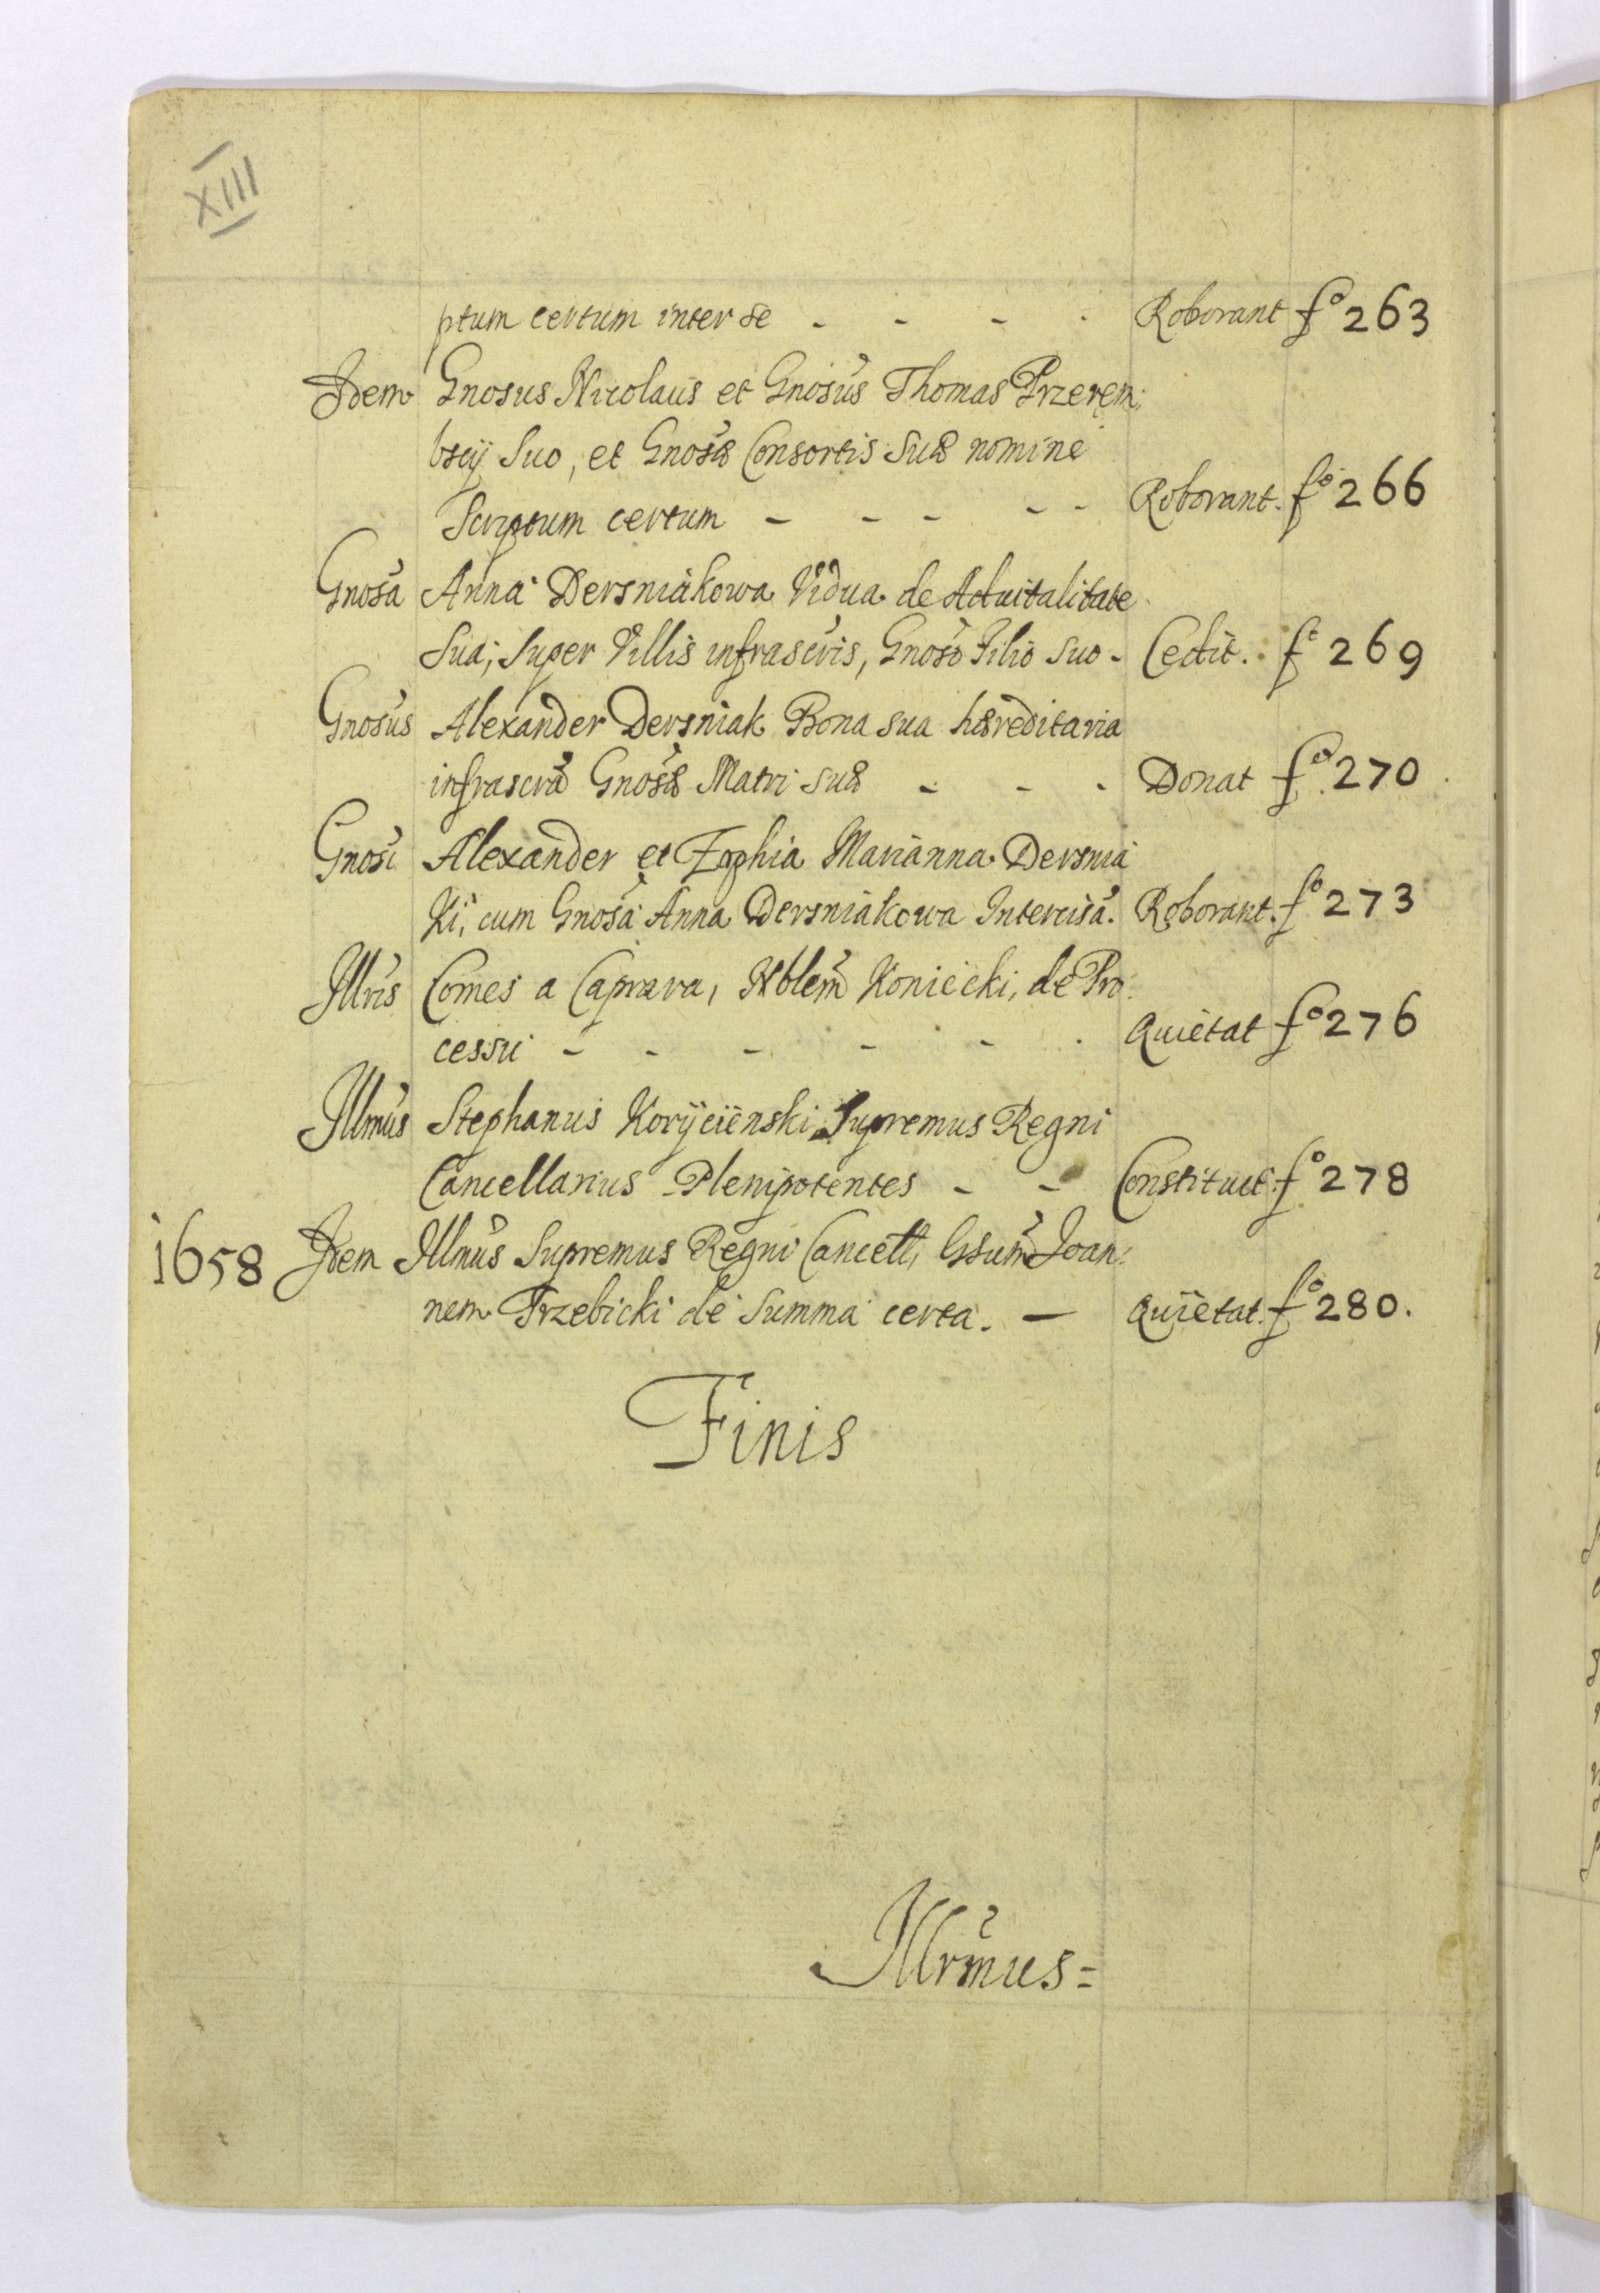 XIII
ptum certum inter se - - - . Roborant fo 263
Idem Gnosus Nicolaus et Gnosus Thomas Przerem,
bscÿ Suo, et Gnosæ Consortis Suæ nomine
Scriptum certum - - - - - Roborant. fo 266
Gnosa Anna Dersniakowa Vidua de Aduitalitate
Sua, Super Villis infrascris, Gnoso Filio Suo - Cedit. fo 269
Gnosus Alexander Dersniak Bona sua hæreditaria
infrascra Gnosæ Matri suæ - - - Donat fo 270
Gnosi Alexander et Zophia Marianna Dersnia
Ki, cum Gnosa Anna Dersniakowa Intercisa. Roborant. fo 273
Illris Comes a Caprara, Nblem Koniecki, de Pro
cessu - - - - - . Quietat fo 276
Illmus Stephanus Korÿcienski Supremus Regni
Cancellarius Plenipotentes - - Constituit. fo 278
1658 Idem Illmus Supremus Regni Cancell, Gsum Joan:
nem Trzebicki de Summa certa. — Quietat. fo 280.
Finis
Illrmus=